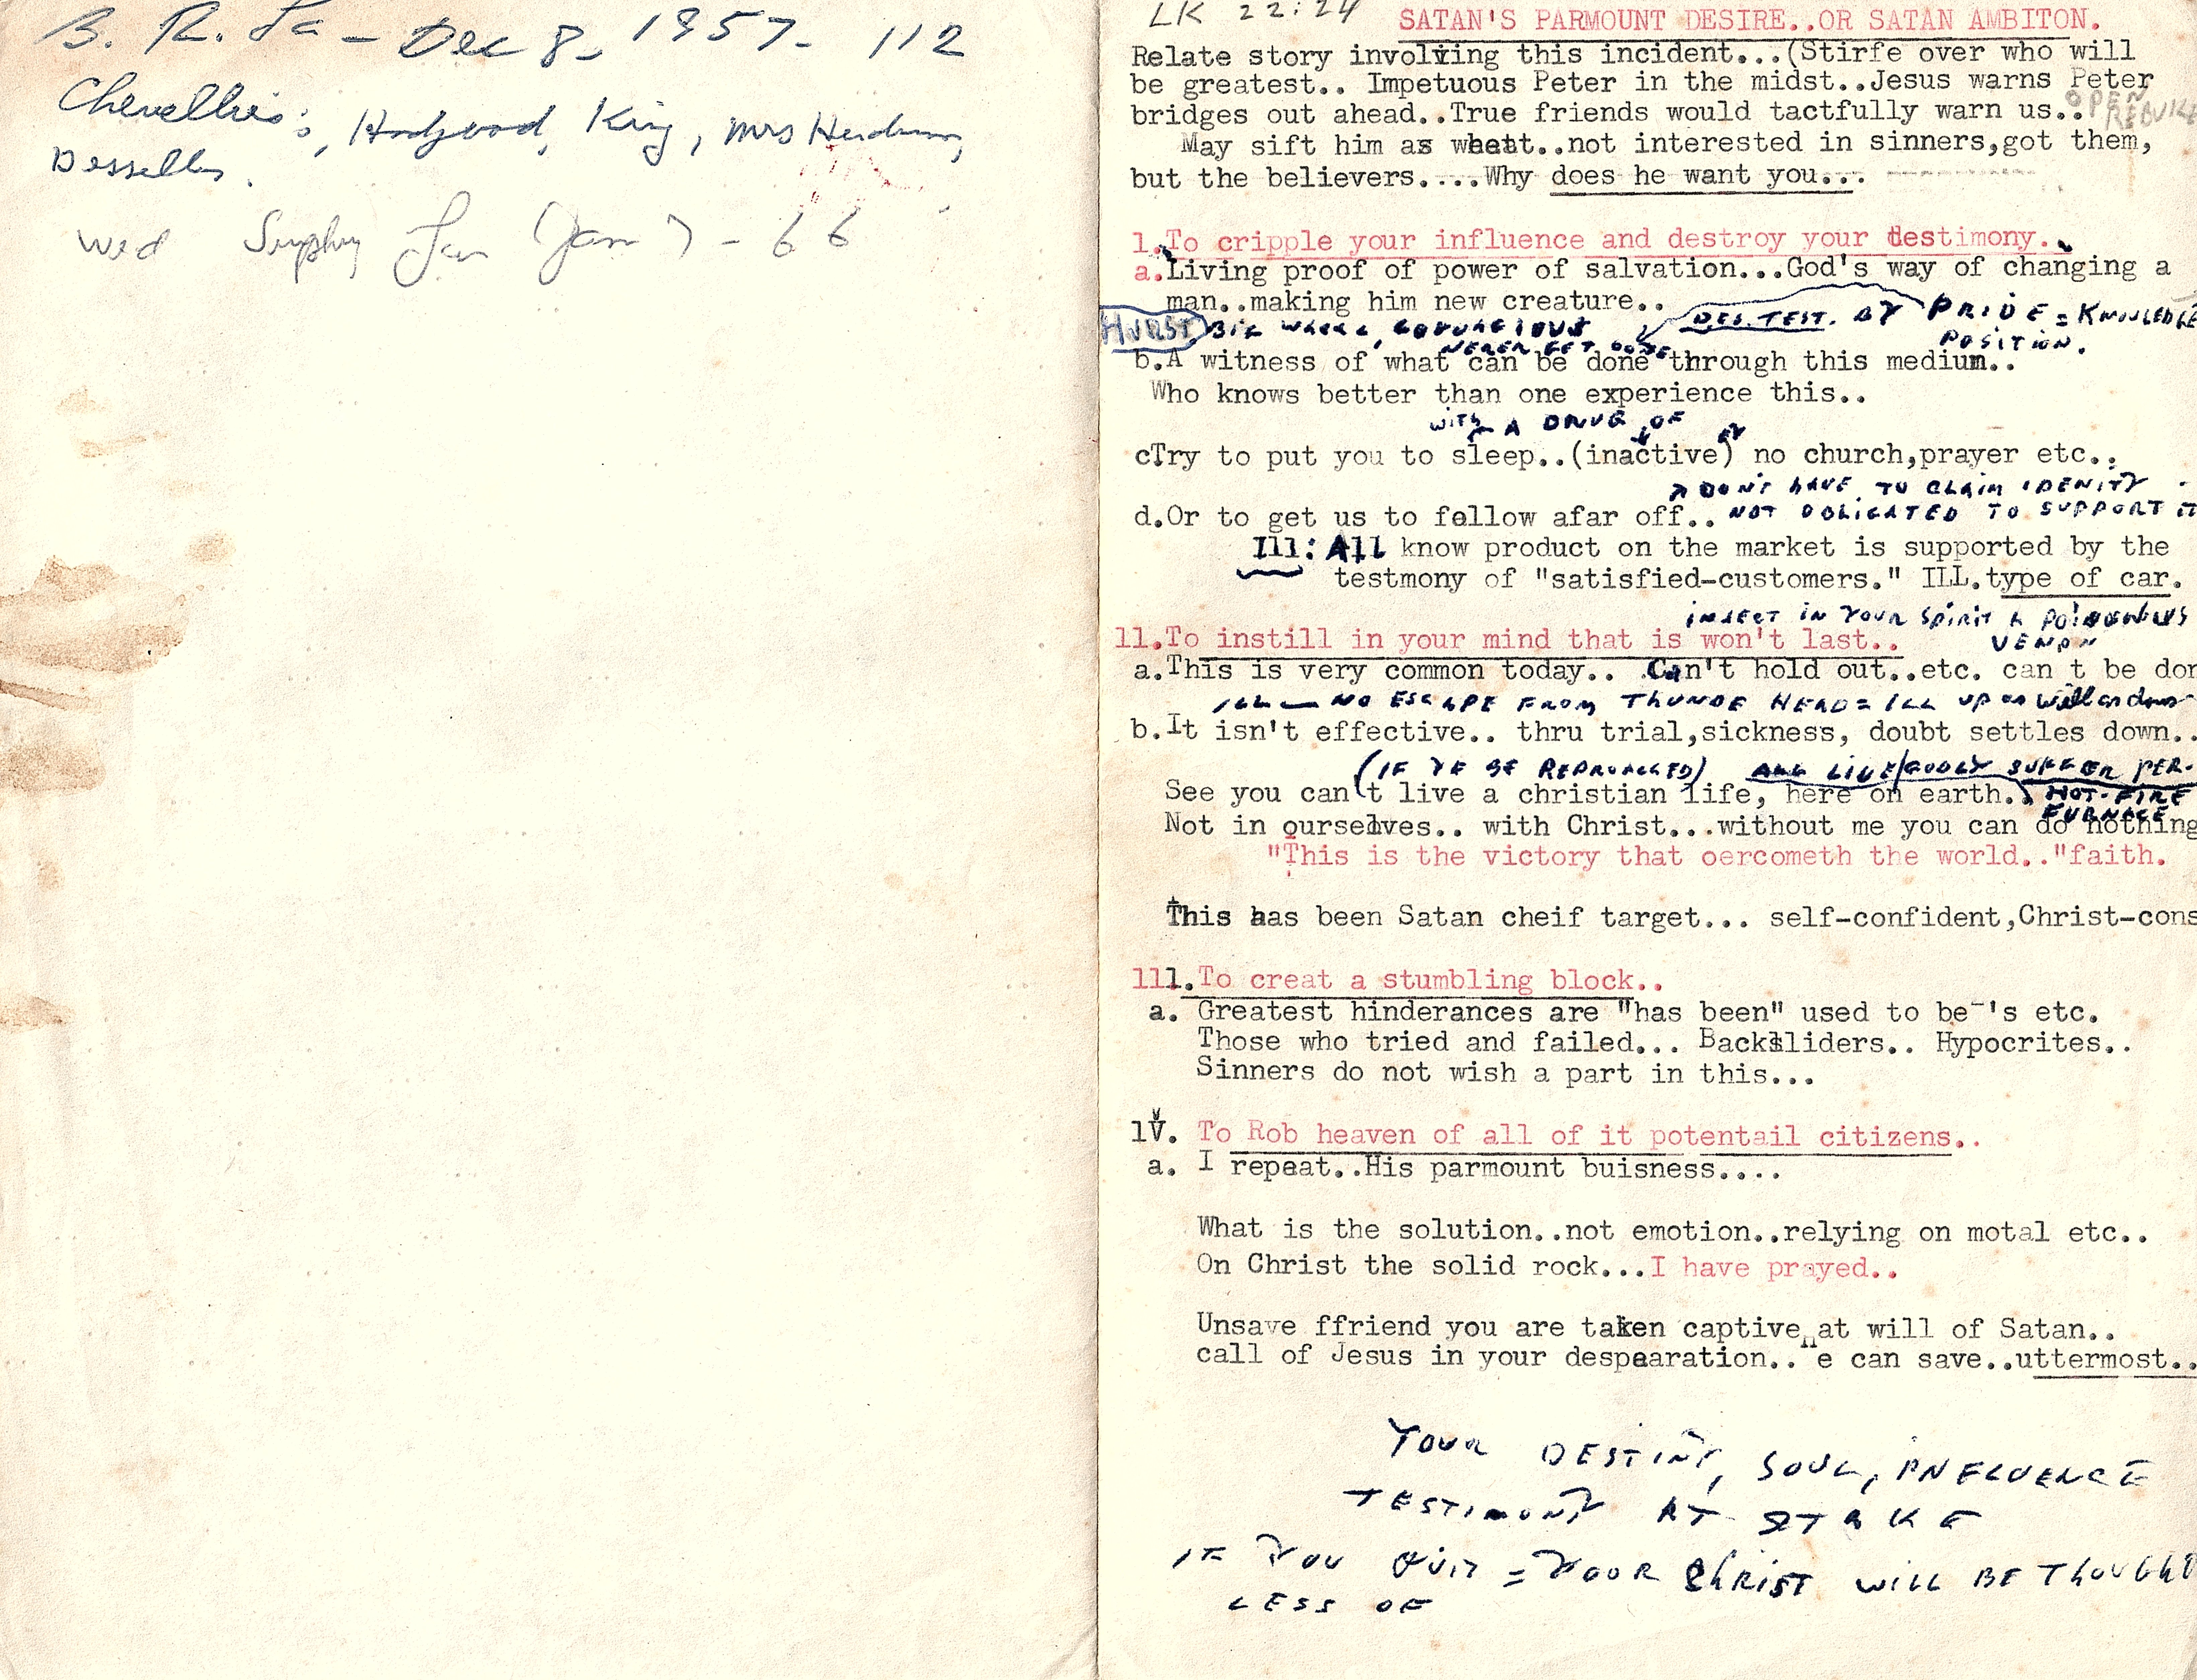 B. R. La - Dec 8, 1957 - 112
King, Mrs
Wed Jan 7 - 66
LK 22:24
SATAN'S PARMOUNT DESIRE..OR SATAN AMBITON.
Relate story involving this incident...(Stirfe over who will
be greatest.. Impetuous Peter in the midst..Jesus warns Peter
bridges out ahead..True friends would tactfully warn us..
OPEN
REBUKE
May sift him as wheat..not interested in sinners,got them,
but the believers....Why does he want you...
1.To cripple your influence and destroy your testimony..
a.Living proof of power of salvation...God's way of changing a
man..making him new creature..
DES. TEST. BY PRIDE = KNOWLEDGE
POSITION.
HURST BIG WHEEL,
NEVER GET DONE
b.A witness of what can be done through this medium..
Who knows better than one experience this..
with A DRUG OF
cTry to put you to sleep..(inactive) no church,prayer etc..
DON'T HAVE TO CLAIM IDENITY
d.Or to get us to fellow afar off.. NOT OBLIGATED TO SUPPORT IT
Ill: All know product on the market is supported by the
testmony of "satisfied-customers." ILL.type of car.
INJECT IN YOUR SPIRIT A POISONOUS
VENON
11.To instill in your mind that is won't last..
a.This is very common today.. Can't hold out..etc. can t be don
ILL — NO ESCAPE FROM THUNDE HEAD = ILL UP as well as down
b.It isn't effective.. thru trial,sickness, doubt settles down..
(IF YE BE REPROACHED) ALL LIVE/GODLY SUFFER PER.
See you can't live a christian life, here on earth..
HOT-FIRE
FURNACE
Not in ourselves.. with Christ...without me you can do nothing
"This is the victory that oercometh the world.."faith.
This has been Satan cheif target... self-confident,Christ-cons
111.To creat a stumbling block..
a. Greatest hinderances are "has been" used to be 's etc.
Those who tried and failed... Backsliders.. Hypocrites..
Sinners do not wish a part in this...
1V. To Rob heaven of all of it potentail citizens..
a. I repeat..His parmount buisness....
What is the solution..not emotion..relying on motal etc..
On Christ the solid rock...I have prayed..
Unsave ffriend you are taken captive at will of Satan..
call of Jesus in your despearation..He can save..uttermost..
YOUR DESTINY, SOUL, INFLUENCE
TESTIMONY AT STAKE
IF YOU QUIT = YOOR CHRIST WILL BE THOUGHT
LESS OF